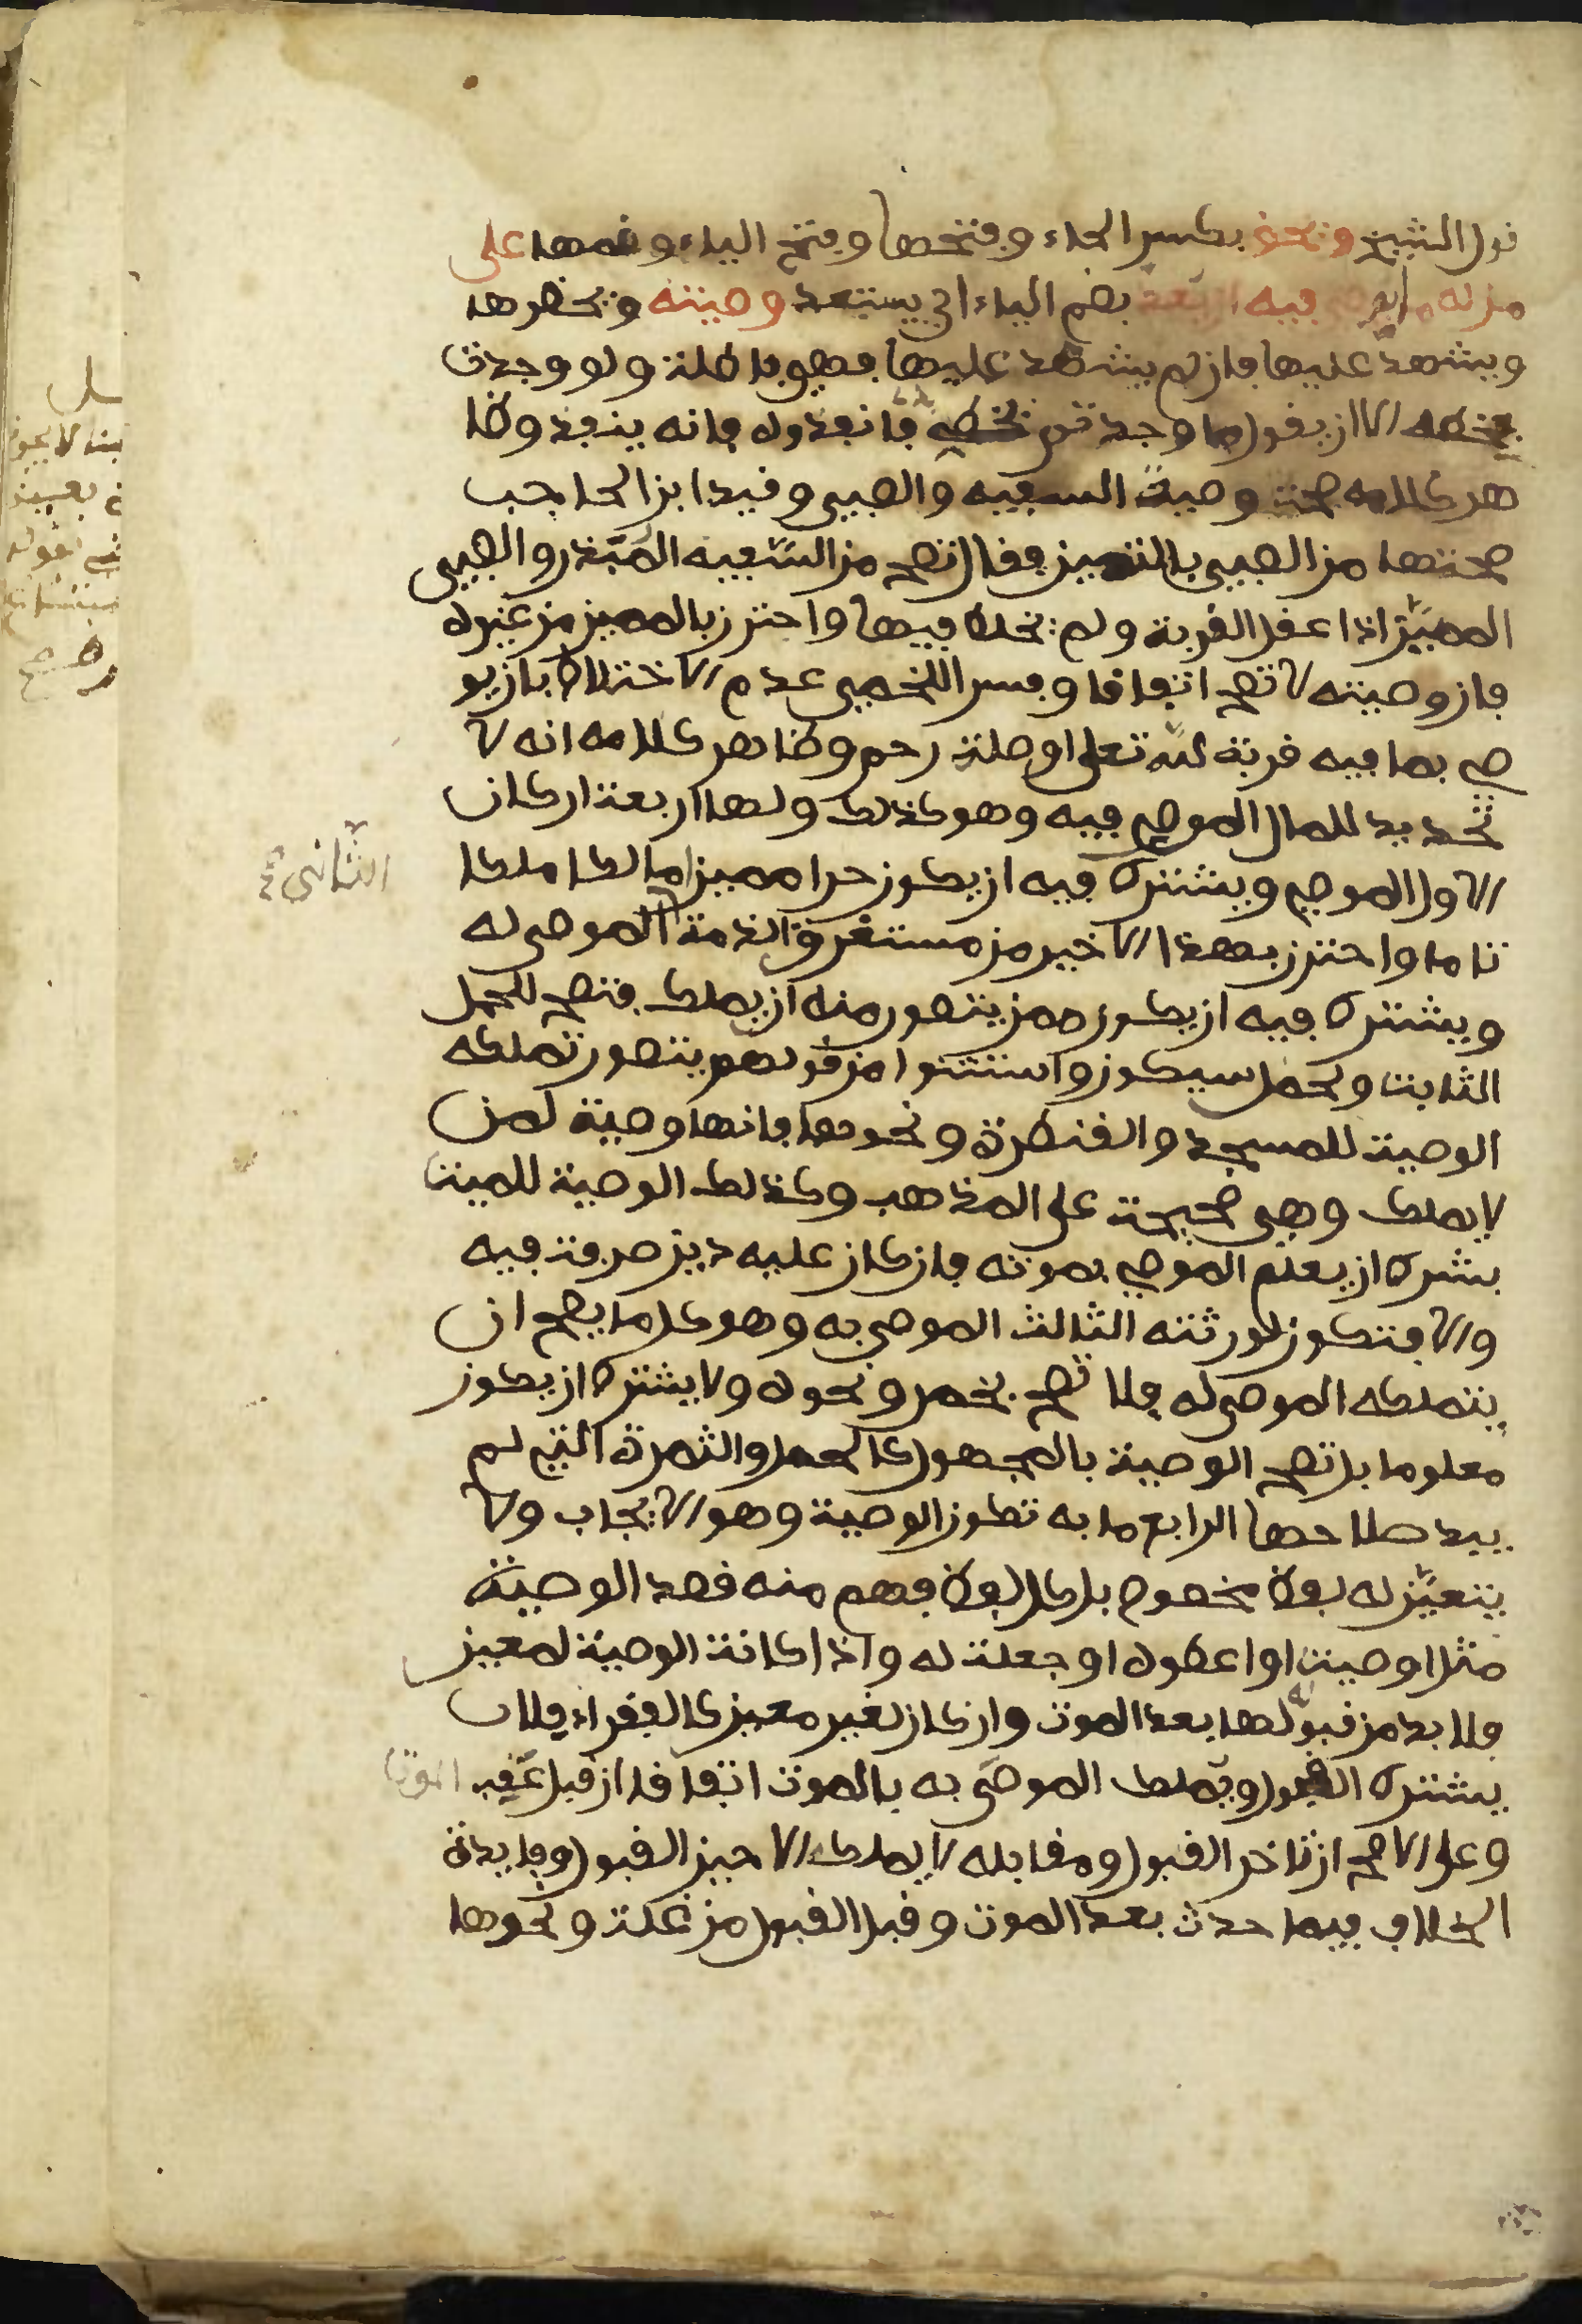 قول الشيخ ويحق بكسر الحاء وفتحها وفتح الياء وضمها على
من له ما يوصي فيه ان يعد بضم الياء اي يستعد وصيته ويحضرها
ويشهد عليها فان لم يشهد عليها فهي باطلة ولو وجدت
بخطه الا ان يقول ما وجدتم بخطي فانفذوه فانه ينفذ وظا
هر كلامه صحة وصية السفيه والصبي وقيد ابن الحاجب
صحتها من الصبي بالتمييز فقال تصح من السفيه المبذر والصبي
المميز اذا عقل القربة ولم يخلط فيها واحترز بالمميز من غيره
فان وصيته لا تصح اتفاقا وفسر اللخمي عدم الاختلاط بان يو
صي بما فيه قربة لله تعلى او صلة رحم وظاهر كلامه انه لا
تحديد للمال الموصي فيه وهو كذلك ولها اربعة اركان
الاول الموصي ويشترط فيه ان يكون حرا مميزا مالكا ملكا
تاما واحترز بهذا الاخير من مستغرق الذمة الموصى له
الثاني
ويشترط فيه ان يكون ممن يتصور منه ان يملك فتصح للحمل
الثابت ولحمل سيكون واستثنوا من قولهم يتصور تملكه
الوصية للمسجد والقنطرة ونحوهما فانها وصية لمن
لا يملك وهي صحيحة على المذهب وكذلك الوصية للميت
بشرط ان يعلم الموصي بموته فان كان عليه دين صرفت فيه
والا فتكون لورثته الثالث الموصى به وهو كل ما يصح ان
يتملكه الموصى له فلا تصح بخمر ونحوه ولا يشترط ان يكون
معلوما بل تصح الوصية بالمجهول كالحمل والثمرة التي لم
يبد صلاحها الرابع ما به تكون الوصية وهو الايجاب ولا
يتعين له لفظ مخصوص بل كل لفظ فهم منه قصد الوصية
مثل اوصيت او اعطوه او جعلت له واذا كانت الوصية لمعين
فلا بد من قبوله لها بعد الموت وان كان لغير معين كالفقراء فلا
يشترط القبول ويملك الموصى به بالموت اتفاقا ان قبل عقب الموت
وعلى الاصح ان تاخر القبول ومقابله لا يملك الا حين القبول وفايدة
الخلاف فيما حدث بعد الموت وقبل القبول من غلة ونحوها